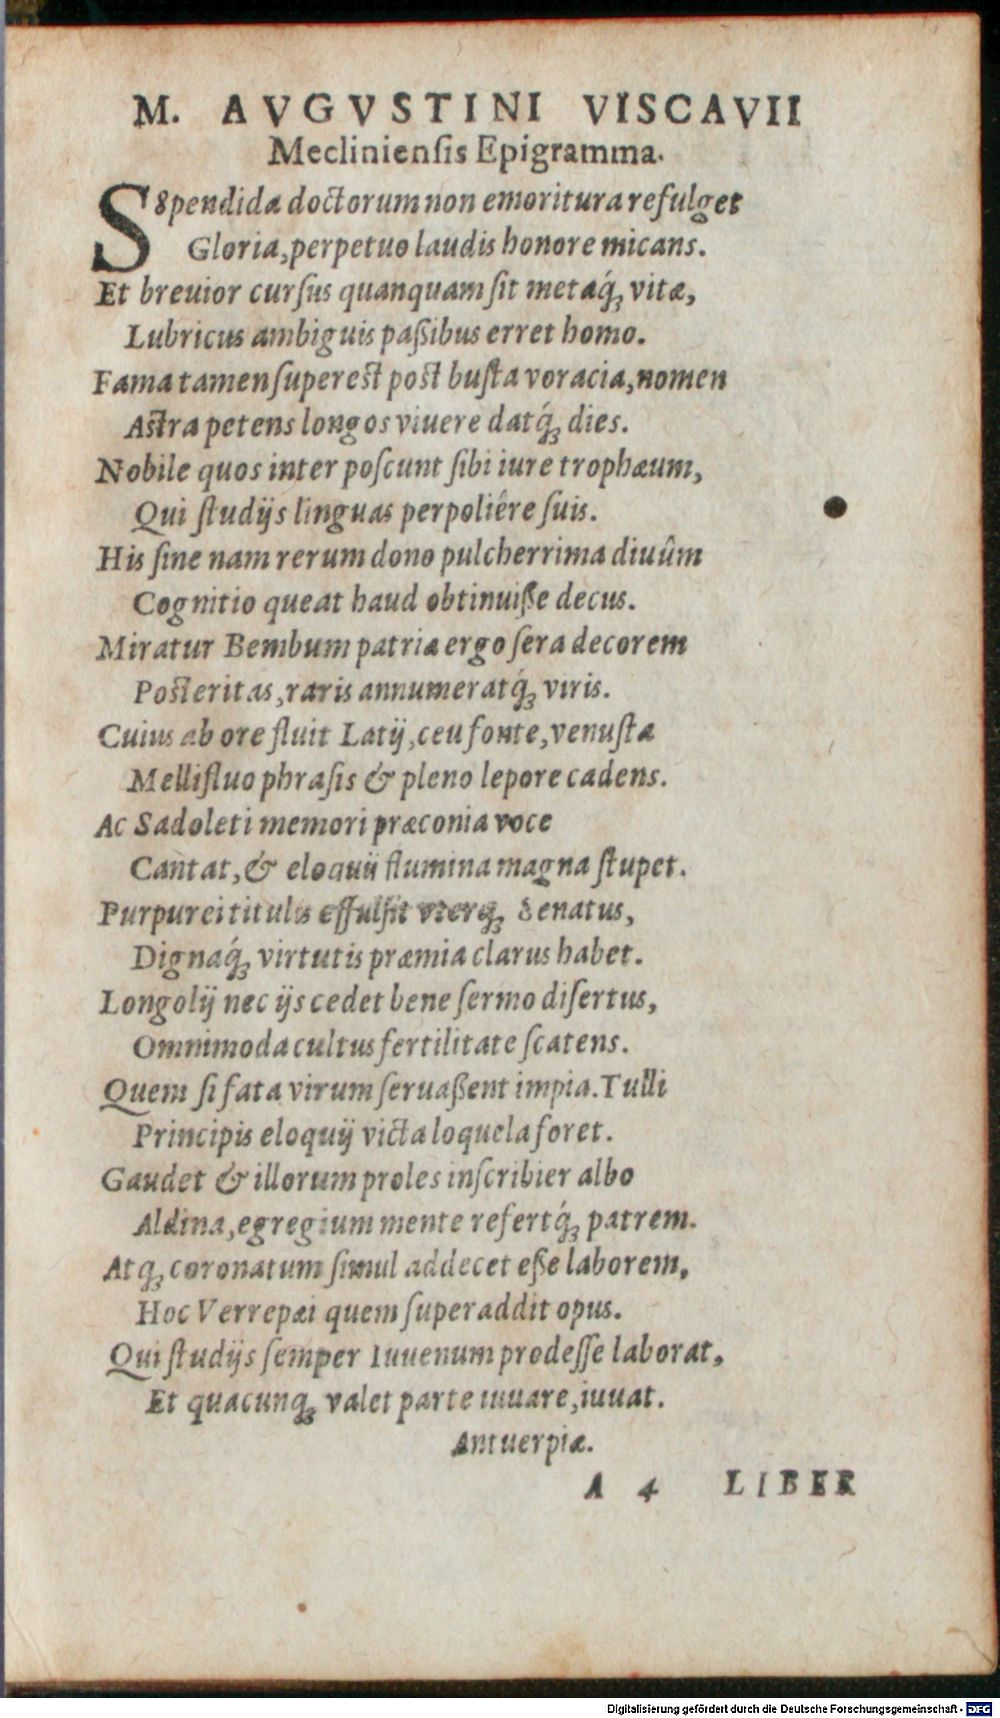 M. AVGVSTINI VISCAVII
Mecliniensis Epigramma.
SSpendida doctorum non emoritura refulget
Gloria, perpetuo laudis honore micans.
Et breuior cursus quanquam sit metaq́; vitæ,
Lubricus ambiguis paßibus erret homo.
Fama tamen superest post busta voracia, nomen
Astra petens longos viuere datq́; dies.
Nobile quos inter poscunt sibi iure trophæum,
Qui studijs linguas perpoliêre suis.
His sine nam rerum dono pulcherrima diuûm
Cognitio queat haud obtinuiße decus.
Miratur Bembum patriæ ergo sera decorem
Posteritas, raris annumeratq́; viris.
Cuius ab ore fluit Latij, ceu fonte, venusta
Mellifluo phrasis & pleno lepore cadens.
Ac Sadoleti memori præconia voce
Cantat, & eloquij flumina magna stupet.
Purpurei titulis effulsit vterq; Senatus,
Dignaq́; virtutis præmia clarus habet.
Longolij nec ijs cedet bene sermo disertus,
Omnimoda cultus fertilitate scatens.
Quem si fata virum seruaßent impia. Tulli
Principis eloquij victa loquela foret.
Gaudet & illorum proles inscribier albo
Aldina, egregium mente refertq́; patrem.
Atq; coronatum simul addecet eße laborem,
Hoc Verrepæi quem superaddit opus.
Qui studijs semper Iuuenum prodesse laborat,
Et quacunq; valet parte iuuare, iuuat.
Antuerpiæ.
A 4 LIBER
Digitalisierung gefördert durch die Deutsche Forschungsgemeinschaft - DFG